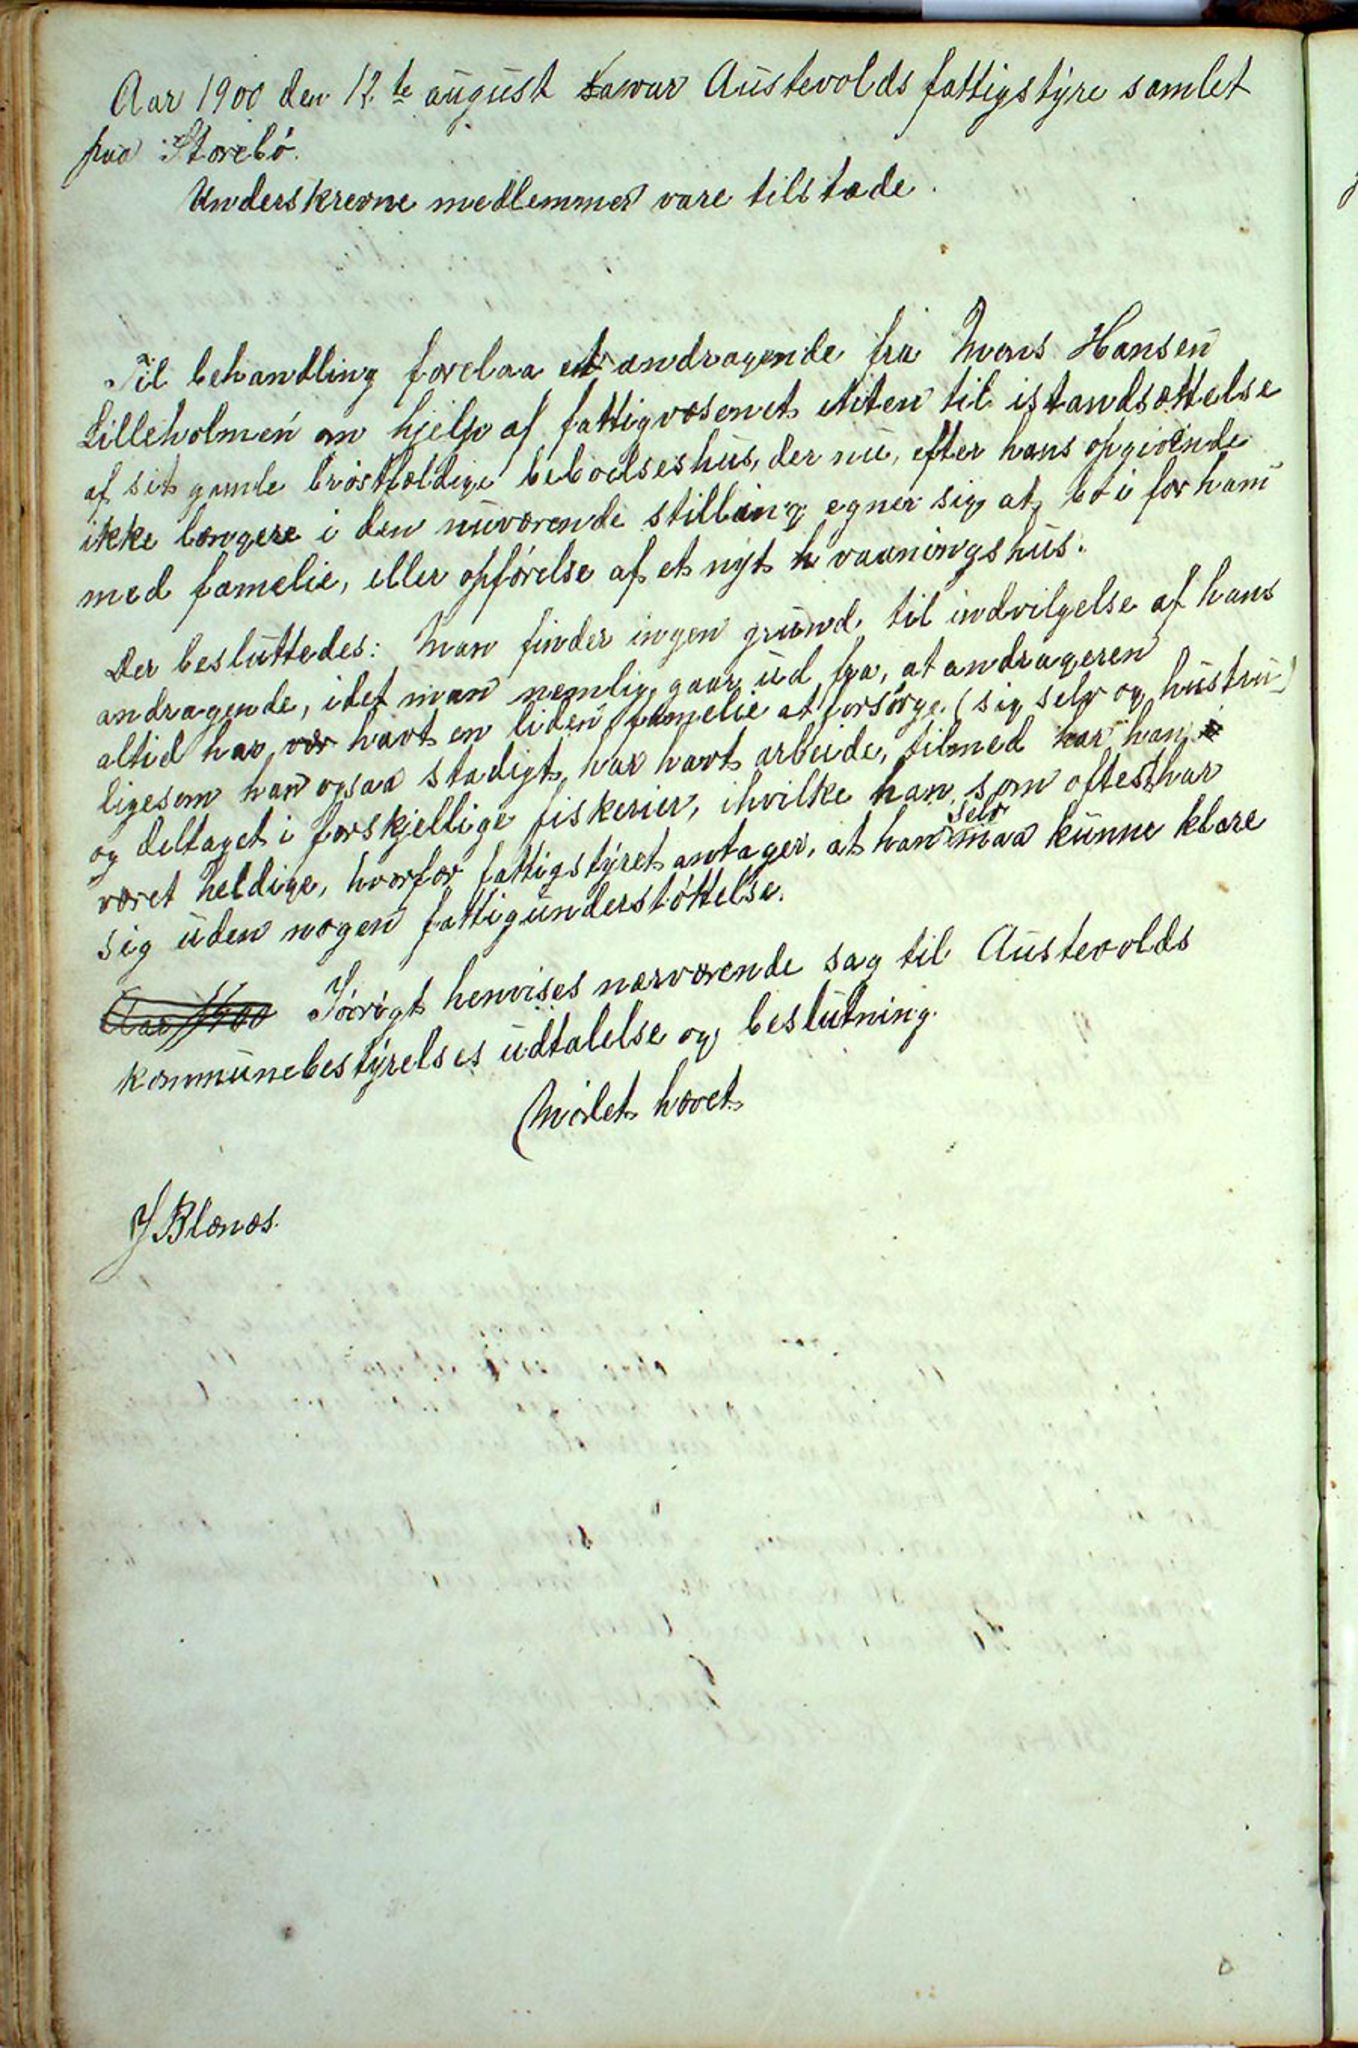 Aar 1900 den 12.te august var Austevolds fattigstyre samlet
paa Storebö.
Underskrevne medlemmer vare tilstæde.
Til behandling forelaa et andragende fra Mons Hansen
Lilleholmen om hjelp af fattigvæsenet enten til istandsættelse
af sit gamle bröstfældige beboelseshus, der nu, efter hans opgivende
ikke længere i den nuværende stilling egner sig at bo i for ham
med famelie, eller opförelse af et nyt vaaningshus.
Der besluttedes: Man finder ingen grund til indvilgelse af hans
andragende, idet man nemlig gaar ud fra, at andrageren
altid har havt en liden famelie at forsörge (sig selv og hustru)
ligesom han ogsaa stadigt har havt arbeide, tilmed har han
og deltaget i forskjellige fiskerier, ihvilke han som oftest har
været heldige, hvorfor fattigstyret antager, at han selv maa kunne klare
sig uden nogen fattigunderstöttelse.
Aar 1900 Iövrigt henvises nærværende sag til Austevolds
kommunebestyrelses udtalelse og beslutning.
Mödet hævet
J Blænæs.